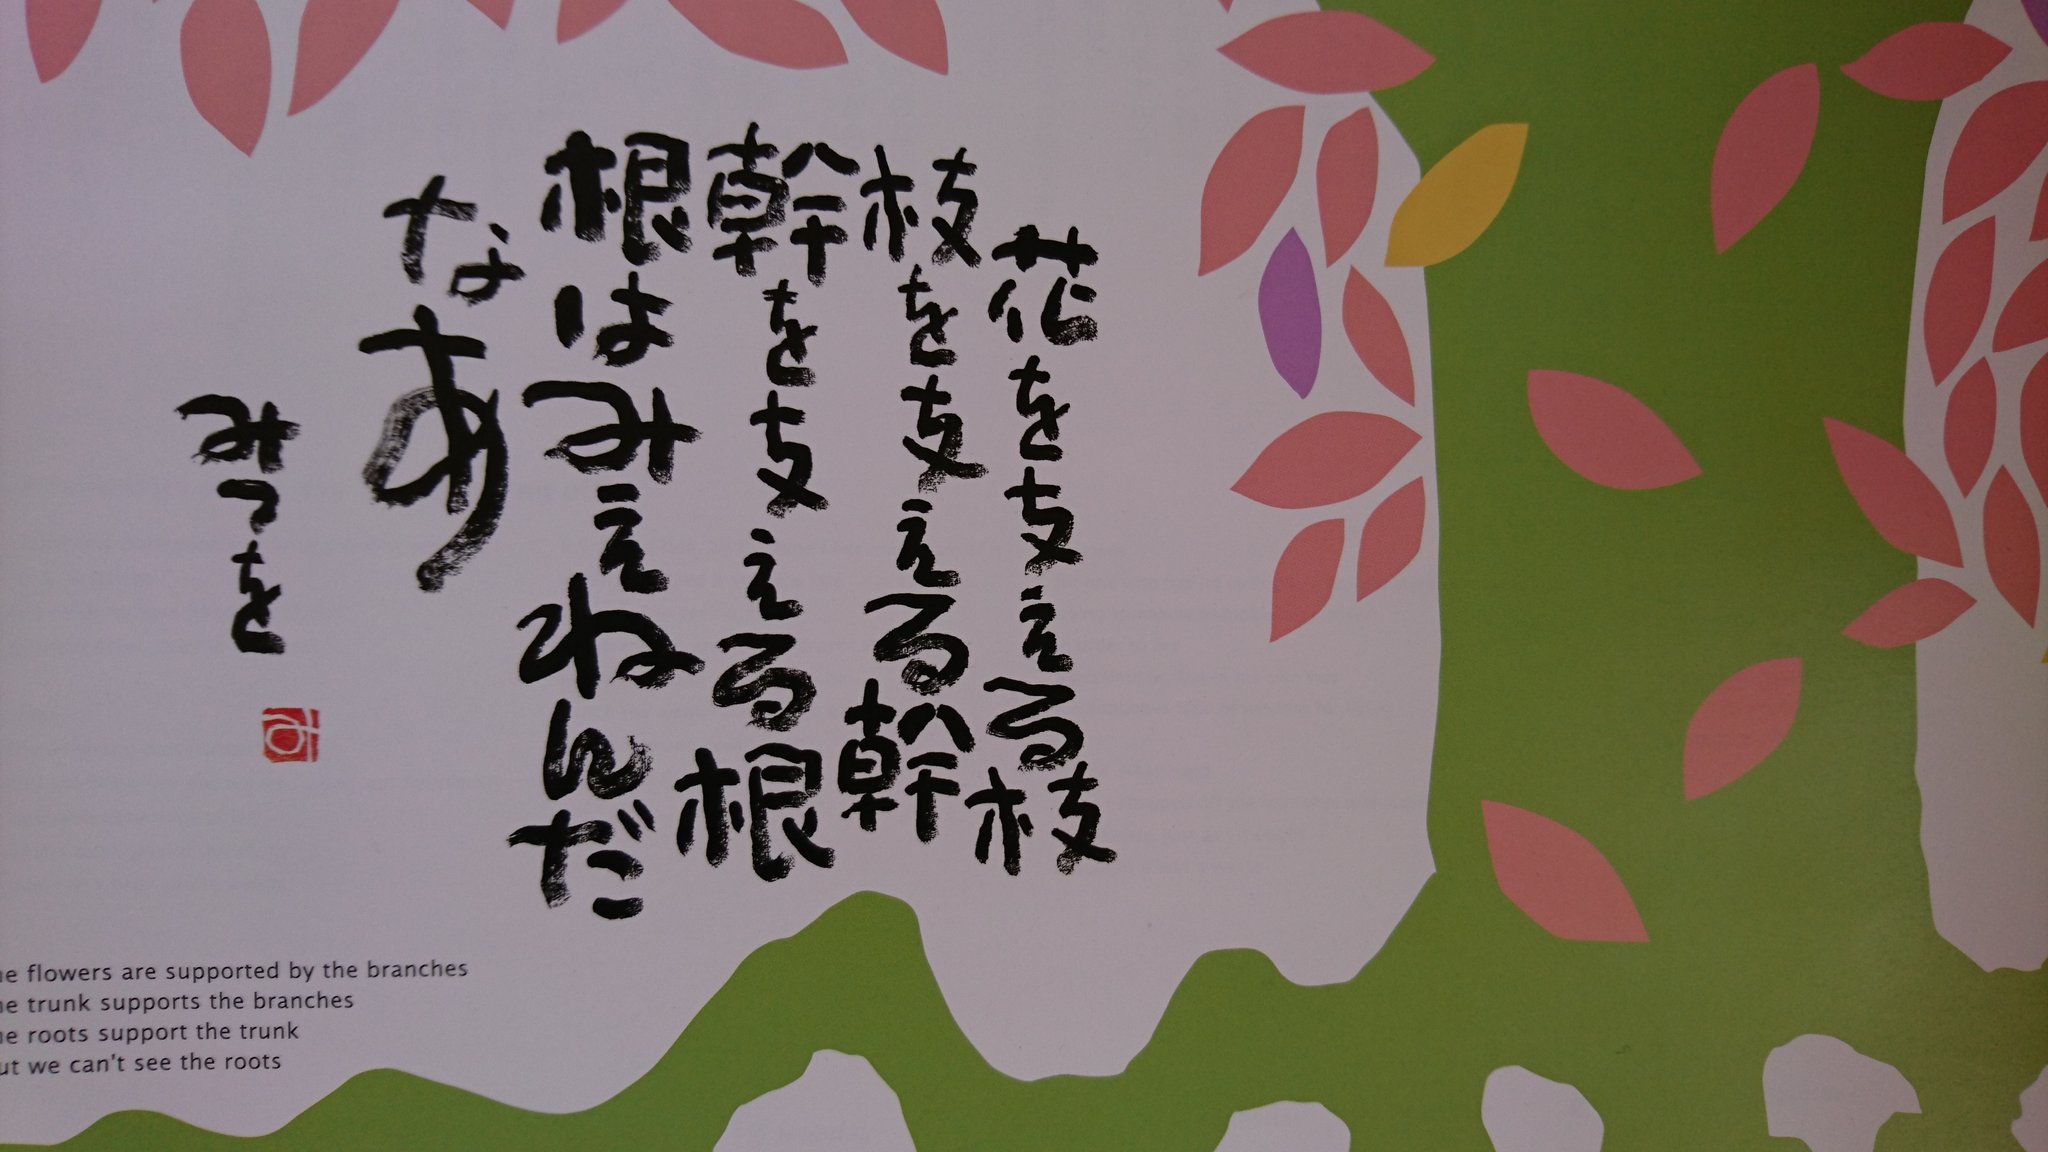 花を支える枝
枝を支える幹
幹を支える根
根はみえねんだ
なあ
みつを
he flowers are supported by the branches
he trunk supports the branches
he roots support the trunk
ut we can't see the roots